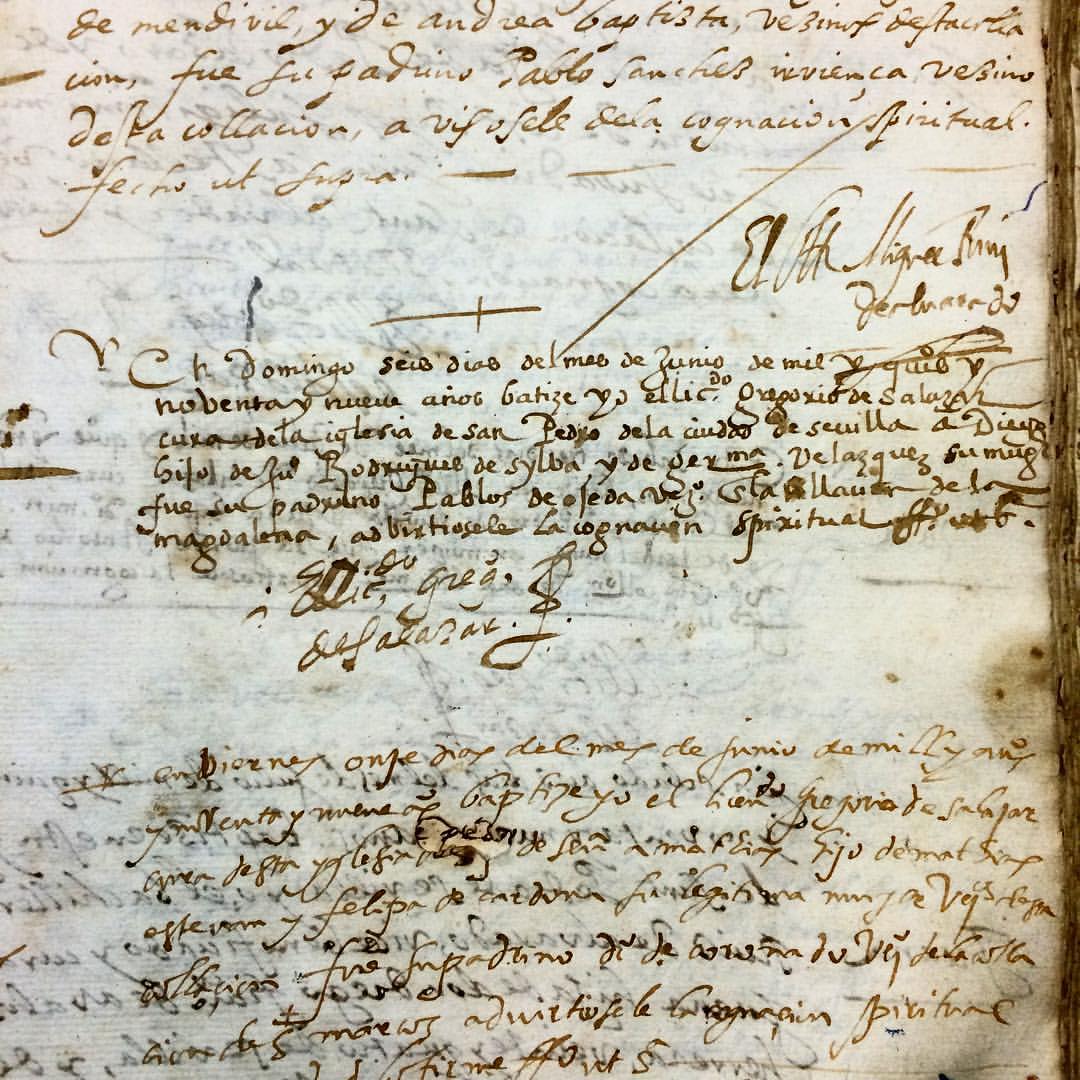 de mendivil, y de andrea baptista, vezinos desta colla
cion, fue su padrino Pablo sanches vezino
desta collacion, avisosele dela cognacion spiritual.
fecho ut supra.
El Miguel
de alvarado
En Domingo seis dias del mes de Junio de mil y quis y
noventa y nueve años batize yo el licdo. Gregorio de Salazar
cura dela iglesia de san Pedro dela ciudad de sevilla a Diego
hijo de Juo Rodrigues de sylba y de germa. Velazquez su muger
fue su padrino Pablos de ojeda vezo. de la
magdalena, advirtiosele la cognacion spiritual
El licdo. grego.
de Salazar.
en viernes onze dias del mes de junio de mill y quis
y noventa y nueve as baptize yo el licendo gregorio de salazar
cura desta yglesia de de sea a matias hijo de matias
estevan y felipa de cardona su legitima muger vezos desta
collacion fue su padrino di de coronado vezo dela colla
cion de S marcos advirtiosele la cognacion spiritual
firme ff ut S